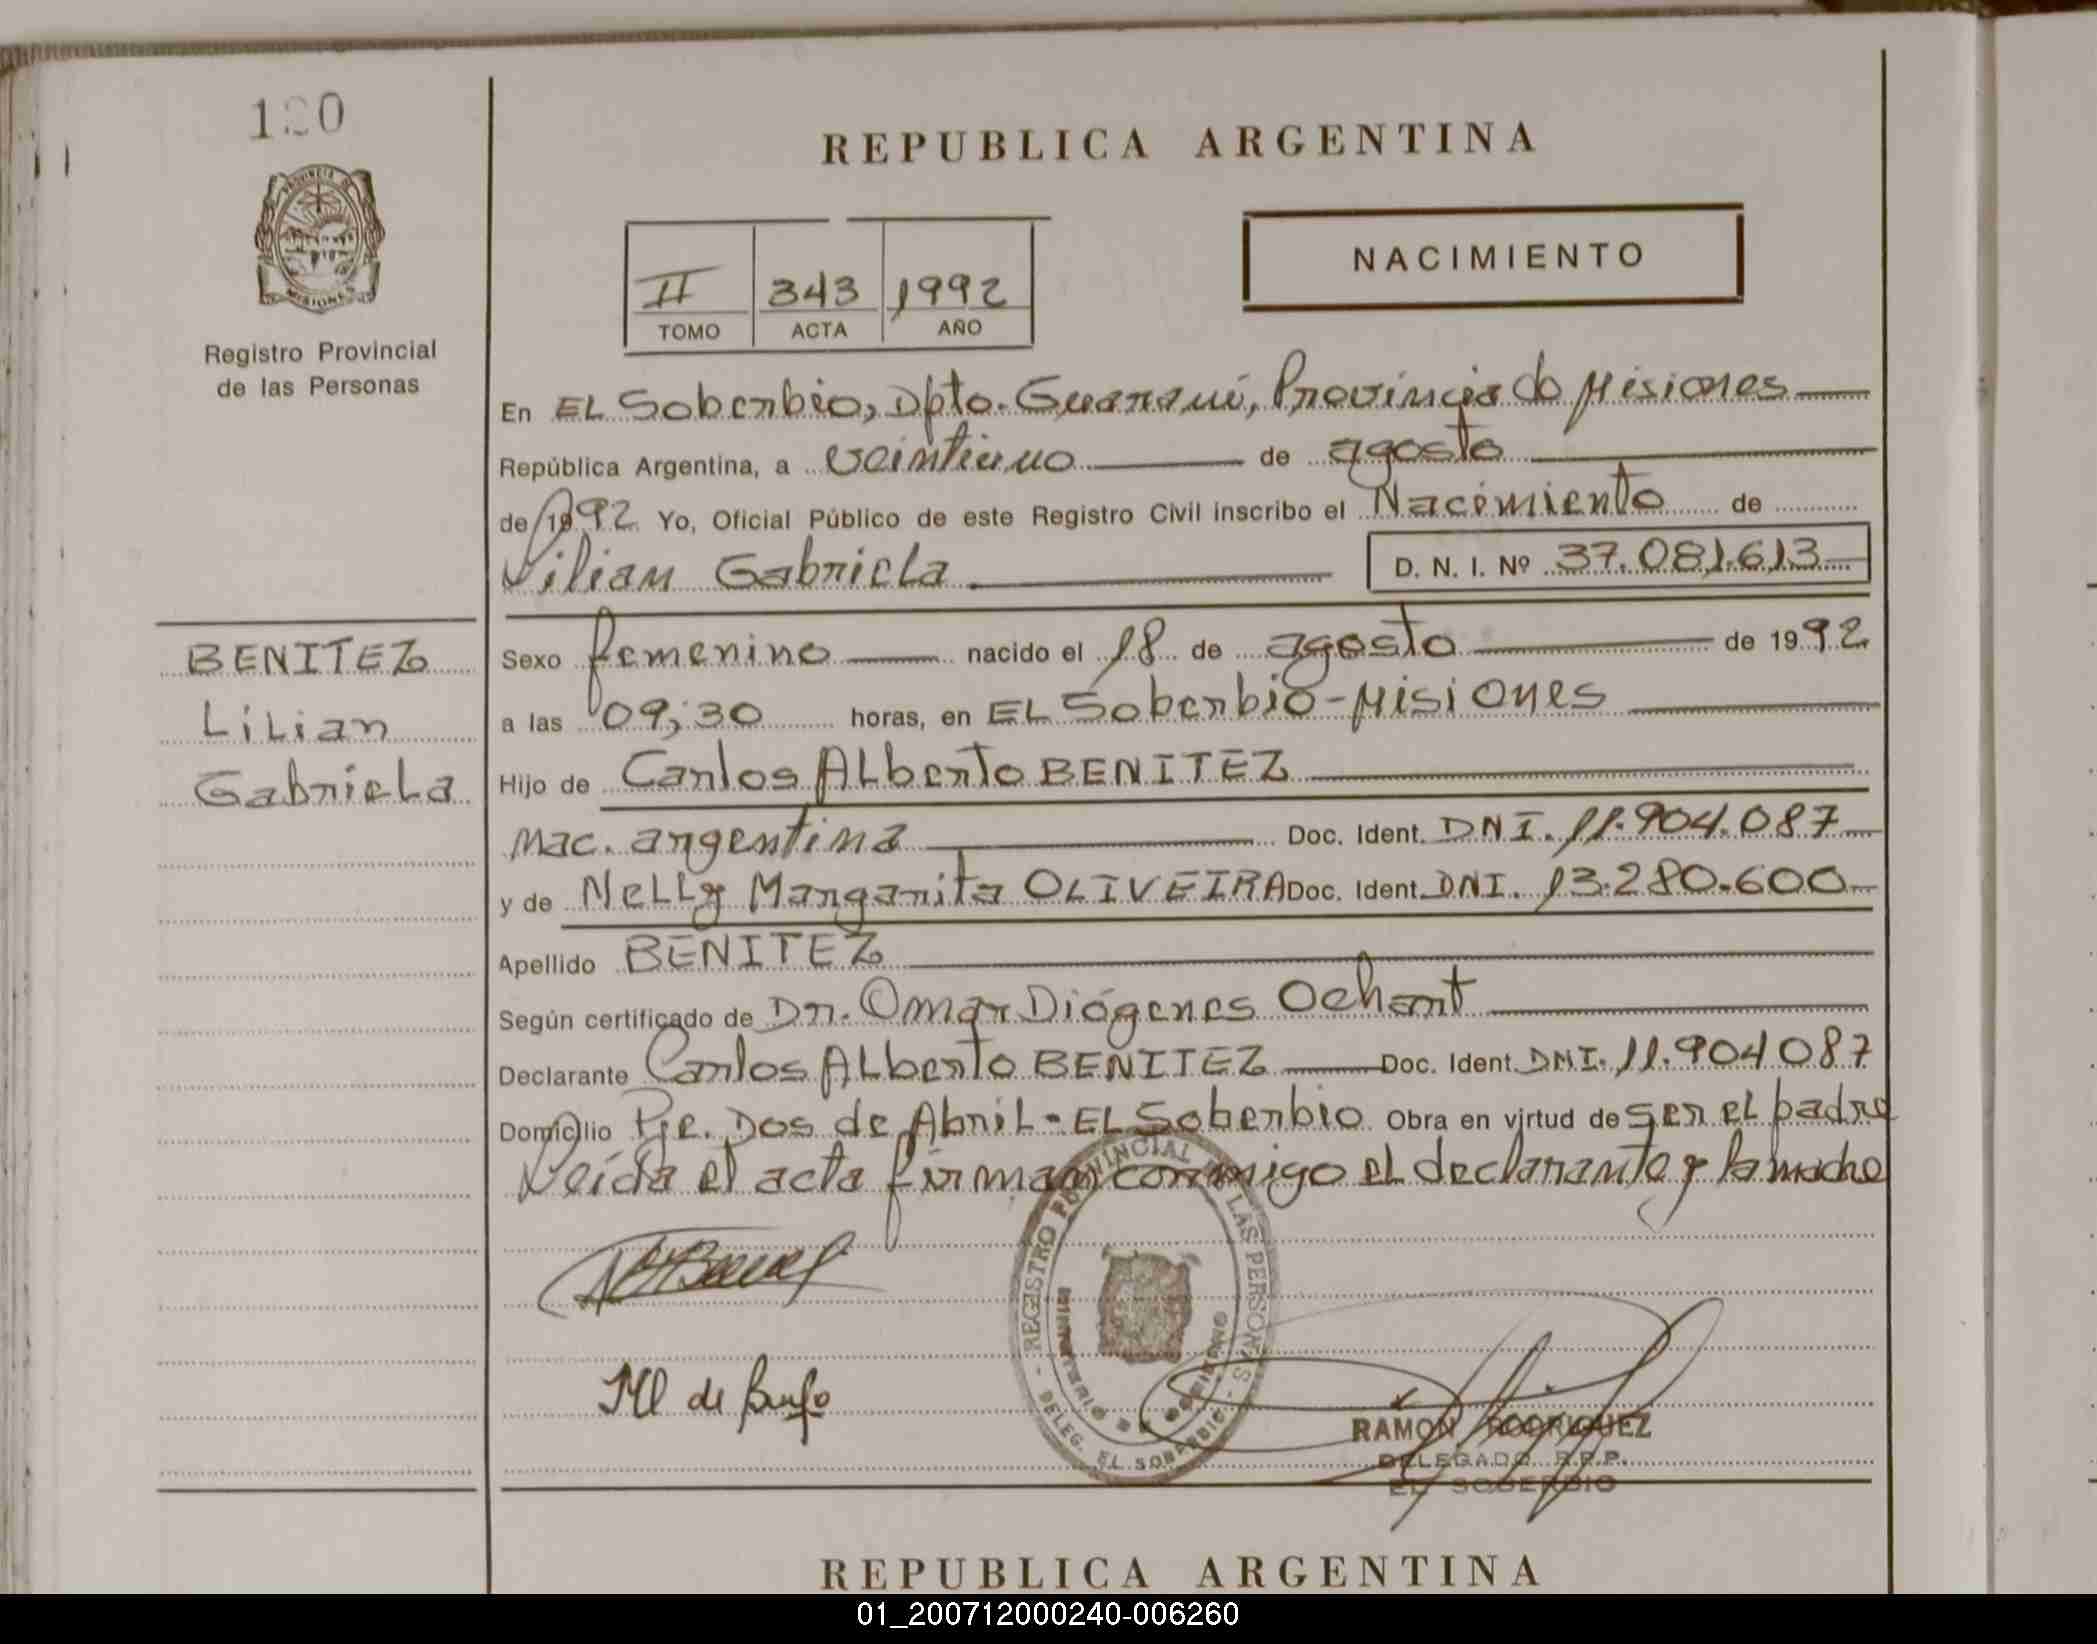 120
PROVINCIA DE
MISIONES
Registro Provincial
de las Personas
REPUBLICA ARGENTINA
NACIMIENTO
II 343 1992
TOMO ACTA AÑO
En EL Soberbio, Dpto. Guaraní, Provincia de Misiones
República Argentina, a veintiuno de agosto
de 1992 Yo, Oficial Público de este Registro Civil inscribo el Nacimiento de
Lilian Gabriela D. N. I. Nº 37.081.613
BENITEZ
Lilian
Gabriela
Sexo femenino nacido el 18 de agosto de 1992
a las 09;30 horas, en EL Soberbio-Misiones
Hijo de Carlos ALberto BENITEZ
nac. argentina Doc. Ident. DNI. 11.904.087
y de NeLLy Margarita OLIVEIRA Doc. Ident. DNI. 13.280.600
Apellido BENITEZ
Según certificado de Dr. Omar Diógenes Ochant
Declarante Carlos ALberto BENITEZ Doc. Ident. DNI. 11.904.087
Domicilio Pje. Dos de Abril - EL Soberbio Obra en virtud de ser el padre
Leída el acta firman conmigo el declarante y la madre
REGISTRO PROVINCIAL DE LAS PERSONAS
MINISTERIO DE GOBIERNO
DELEG. EL SOBERBIO
RAMON RODRIGUEZ
DELEGADO R.P.P.
EL SOBERBIO
REPUBLICA ARGENTINA
01_200712000240-006260